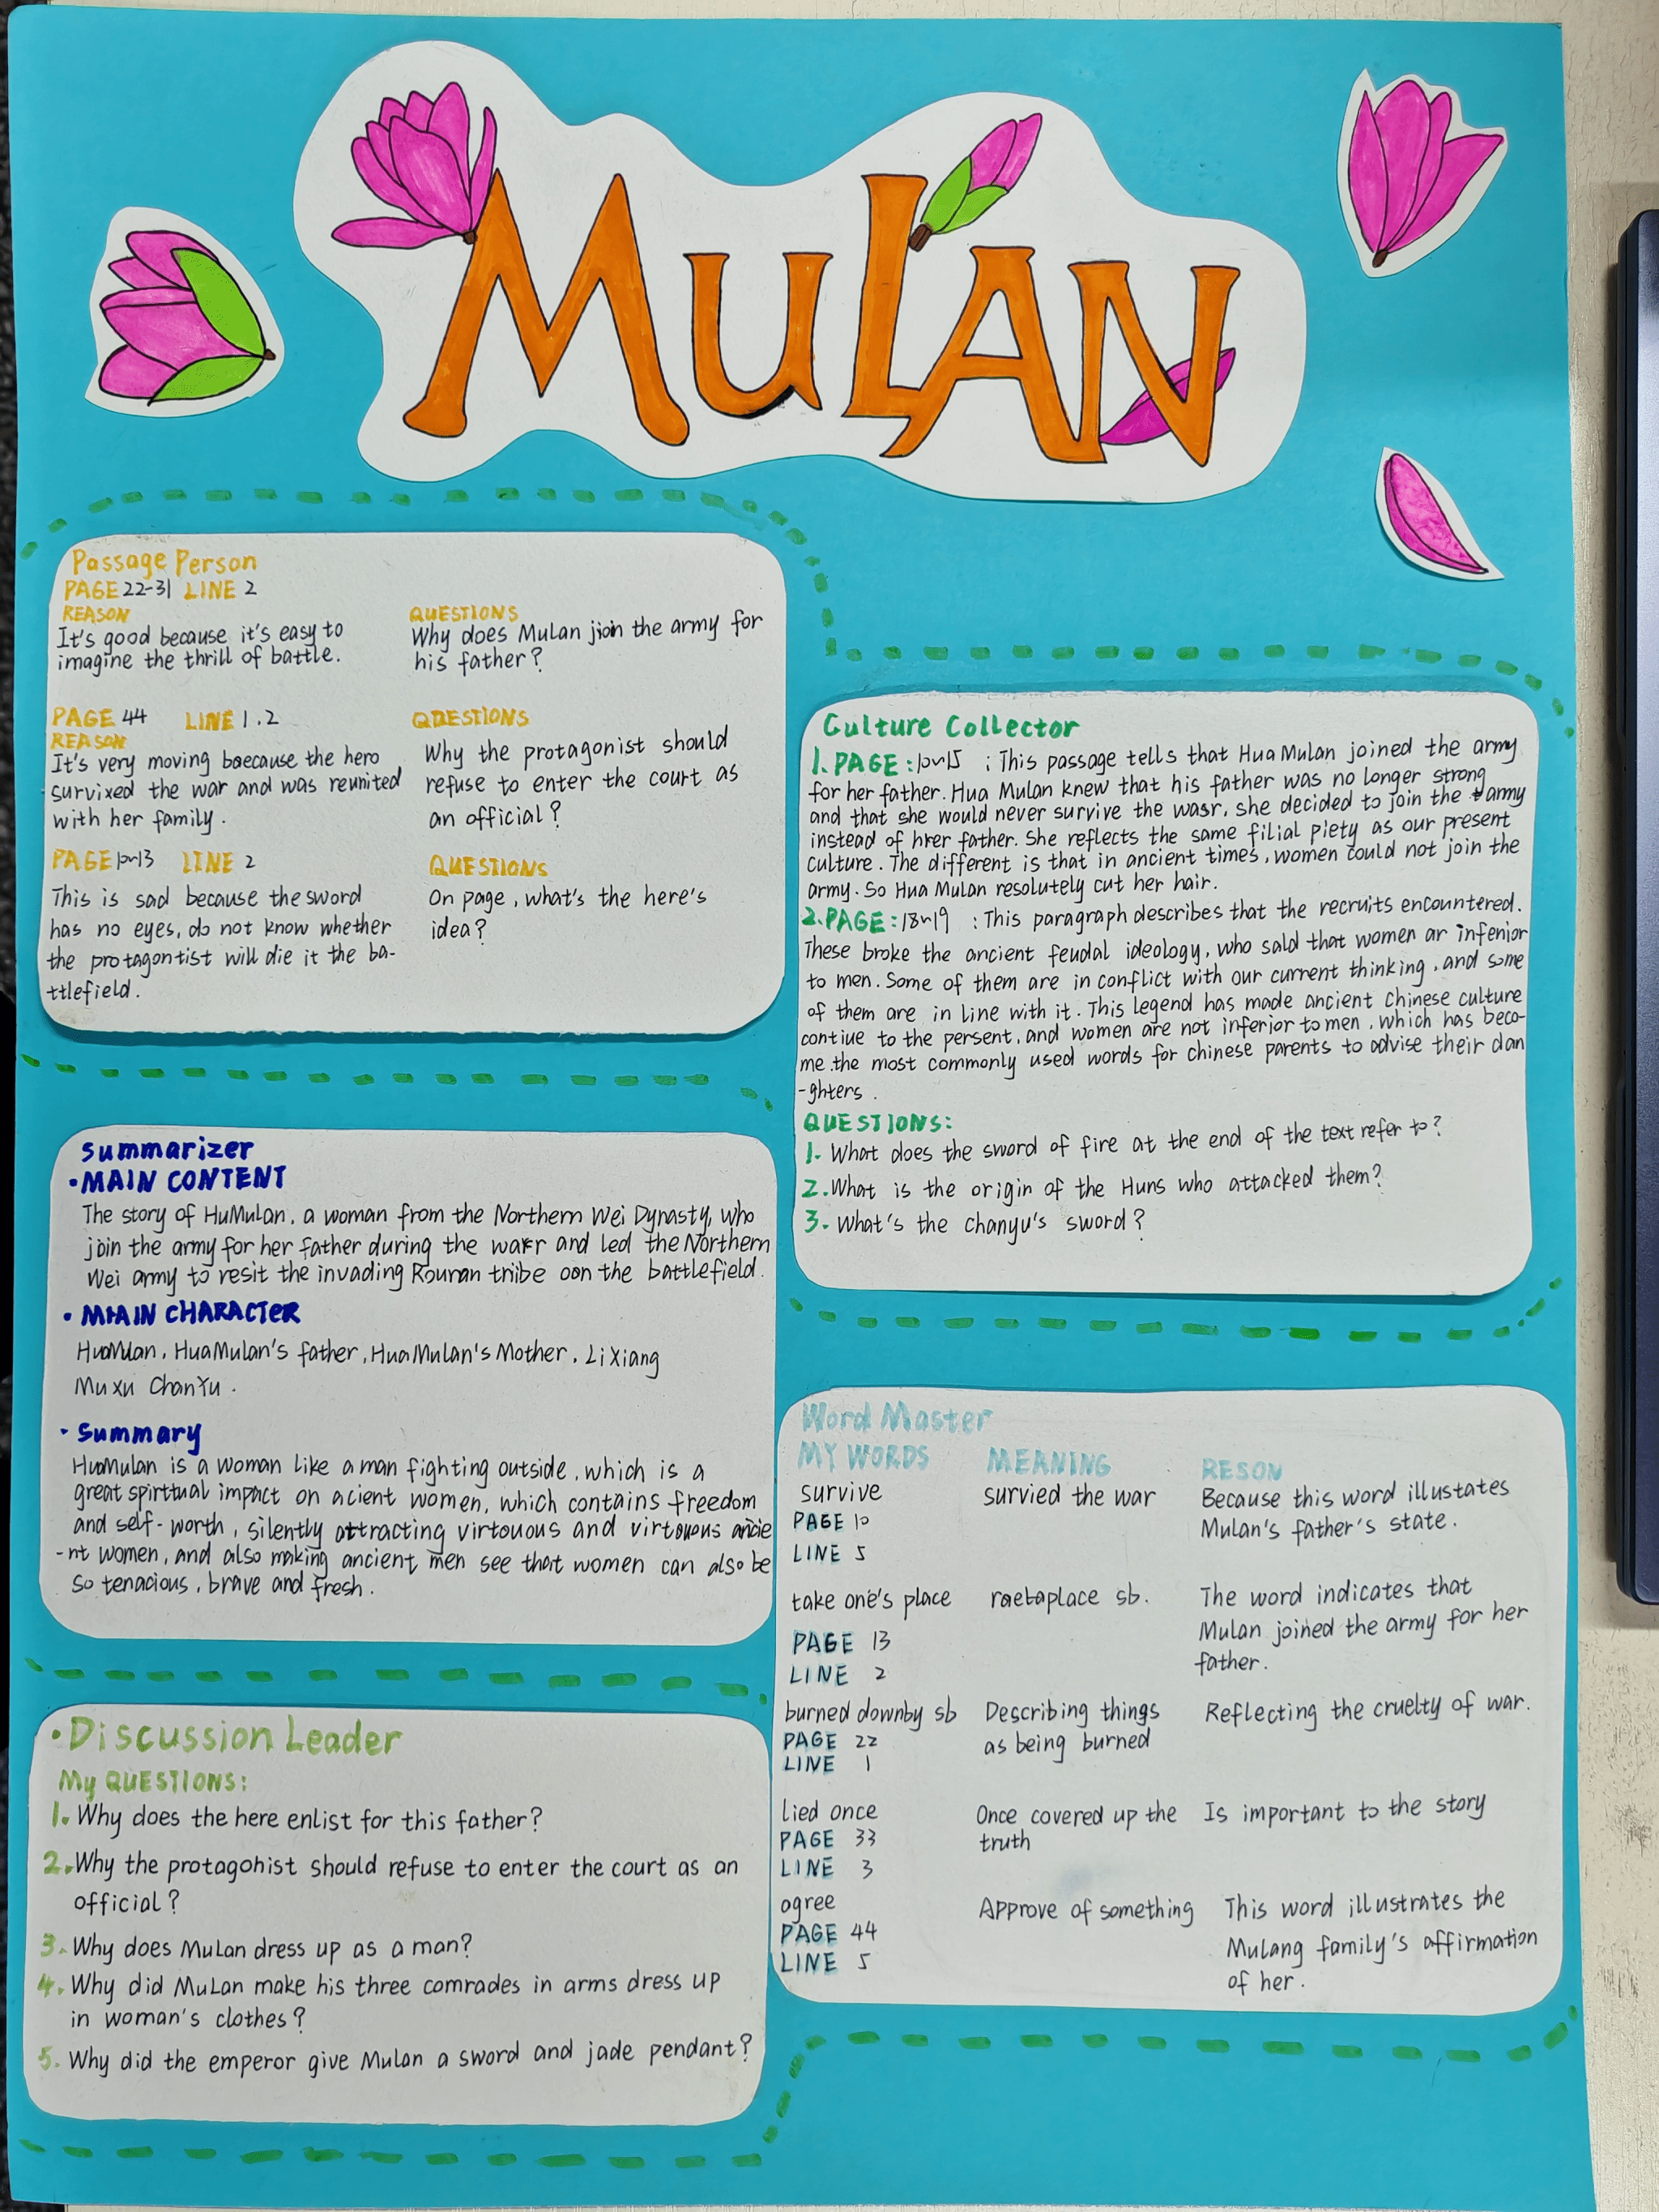 MuLAN
Passage Person
PAGE 22-31 LINE 2
REASON
It's good because it's easy to
imagine the thrill of battle.
QUESTIONS
Why does Mulan jion the army for
his father?
PAGE 44 LINE 1.2
REASON
It's very moving baecause the hero
survixed the war and was reunited
with her family.
QUESTIONS
Why the protagonist should
refuse to enter the court as
an official?
PAGE 10~13 LINE 2
This is sad because the sword
has no eyes, do not know whether
the protagontist will die it the ba-
ttlefield.
QUESTIONS
On page, what's the here's
idea?
Culture Collector
1. PAGE: 10~15 : This passage tells that Hua Mulan joined the army
for her father. Hua Mulan knew that his father was no longer strong
and that she would never survive the wasr, she decided to join the army
instead of hrer father. She reflects the same filial piety as our present
culture. The different is that in ancient times, women could not join the
army. So Hua Mulan resolutely cut her hair.
2. PAGE: 18~19 : This paragraph describes that the recruits encountered.
These broke the ancient feudal ideology, who sald that women ar infenior
to men. Some of them are in conflict with our current thinking, and some
of them are in line with it. This legend has made ancient Chinese culture
contiue to the persent, and women are not inferior to men, which has beco-
me the most commonly used words for chinese parents to advise their dan
-ghters.
QUESTIONS:
1. What does the sword of fire at the end of the text refer to?
2. What is the origin of the Huns who attacked them?
3. What's the chanyu's sword?
Summarizer
·MAIN CONTENT
The story of HuMulan, a woman from the Northern Wei Dynasty, who
join the army for her father during the wakr and led the Northern
Wei army to resit the invading Rouran tribe oon the battlefield.
· MAIN CHARACTER
HuaMulan, HuaMulan's father, HuaMulan's Mother, Li Xiang
Mu xu ChanYu.
· Summary
HuaMulan is a woman like a man fighting outside, which is a
great spirttual impact on acient women, which contains freedom
and self-worth, silently attracting virtouous and virtouous ancie
-nt women, and also making ancient men see that women can also be
so tenacious, brave and fresh.
Word Master
MY WORDS MEANING RESON
survive survied the war Because this word illustates
PAGE 10 Mulan's father's state.
LINE 5
take one's place sb. The word indicates that
PAGE 13 Mulan joined the army for her
LINE 2 father.
burned downby sb Describing things Reflecting the cruelty of war.
PAGE 22 as being burned
LINE 1
lied once Once covered up the Is important to the story
PAGE 33 truth
LINE 3
agree Approve of something This word illustrates the
PAGE 44 Mulang family's affirmation
LINE 5 of her.
·Discussion Leader
My QUESTIONS:
1. Why does the here enlist for this father?
2. Why the protagohist should refuse to enter the court as an
official?
3. Why does Mulan dress up as a man?
4. Why did MuLan make his three comrades in arms dress up
in woman's clothes?
5. Why did the emperor give Mulan a sword and jade pendant?